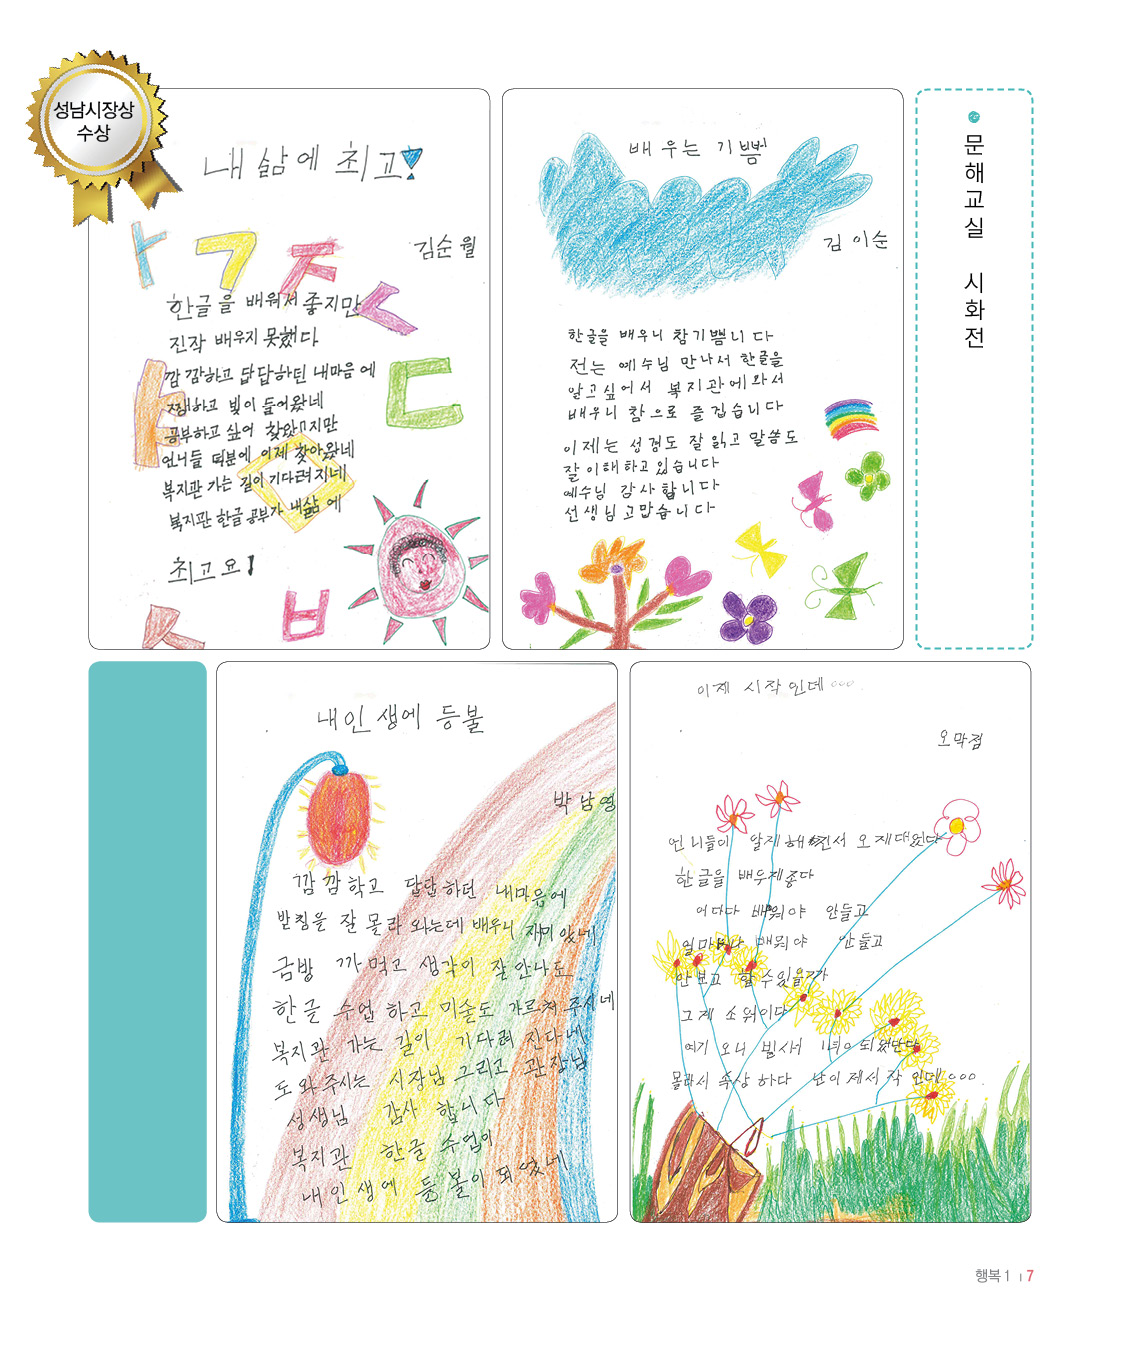 성남시장상
수상
내 삶에 최고!
김순월
한글을 배워서 좋지만
진작 배우지 못했다
깜깜하고 답답하던 내마음에
찜하고 빛이 들어왔네
공부하고 싶어 찾았지만
언니들 덕분에 이제 찾아왔네
복지관 가는 길이 기다려지네
복지관 한글공부가 내삶에
최고요!
배우는 기쁨
김이순
한글을 배우니 참기쁨니다
저는 예수님 만나서 한글을
알고싶어서 복지관에와서
배우니 참으로 즐겁습니다
이제는 성경도 잘 읽고 말씀도
잘이해하고있습니다
예수님 감사합니다
선생님고맙습니다
문해교실 시화전
내인생에 등불
박남영
깜깜학고 답답하던 내마음에
받침을 잘 몰라 와는데 배우니 재미있네
금방 까먹고 생각이 잘안나도
한글 수업하고 미술도 가르쳐주시네
복지관 가는 길이 기다려진다네
도와주시는 시장님 그리고 관장님
성생님 감사합니다
복지관 한글 수업이
내인생에 등불이되였네
이제 시작인데...
오막점
언니들이 알제해 진서 오게대었다
한글을 배우제좋다
어다다 배워야 안들고
얼마나 매워야 안들고
안보고 할수있을까
그게 소원이다
여기 오니 빔사서 1년이되었단다
몰라서 속상하다 난이제서작인데...
행복1 | 7